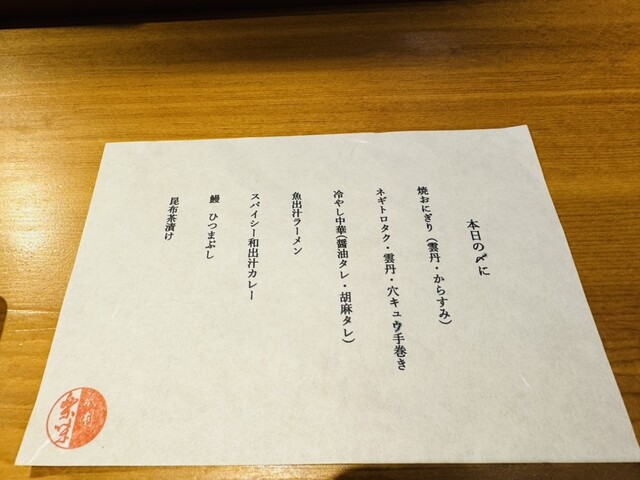 本日の〆に
焼おにぎり（雲丹・からすみ）
ネギトロタク・雲丹・穴キュウ手巻き
冷やし中華（醤油タレ・胡麻タレ）
魚出汁ラーメン
スパイシー和出汁カレー
鰻　ひつまぶし
昆布茶漬け